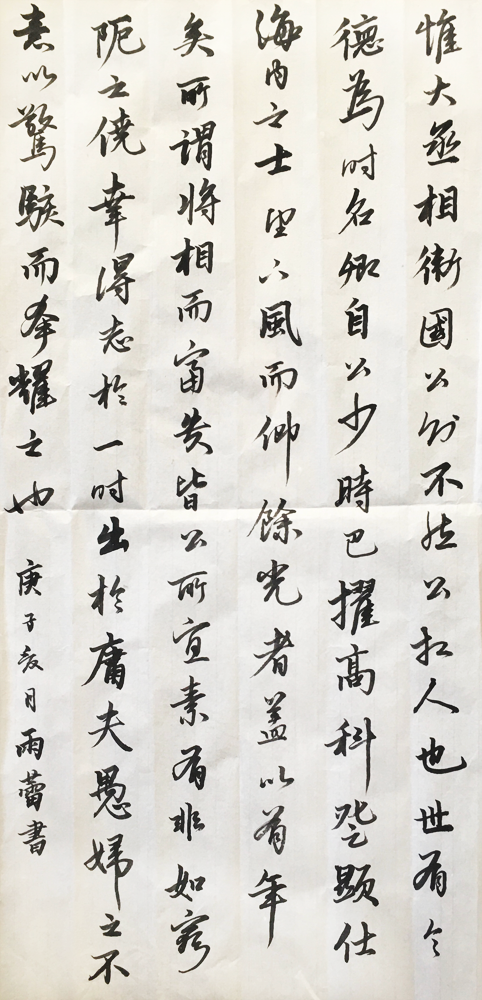 惟大丞相衛國公則不然公相人也世有令
德為时名卿自公少時已擢高科登顯仕
海內之士望下風而仰餘光者蓋以有年
矣所謂將相而富貴皆公所宜素有非如窮
阨之僥幸得志於一时出於庸夫愚婦之不
意以驚駭而夸耀之也
庚子夏月雨蕾書